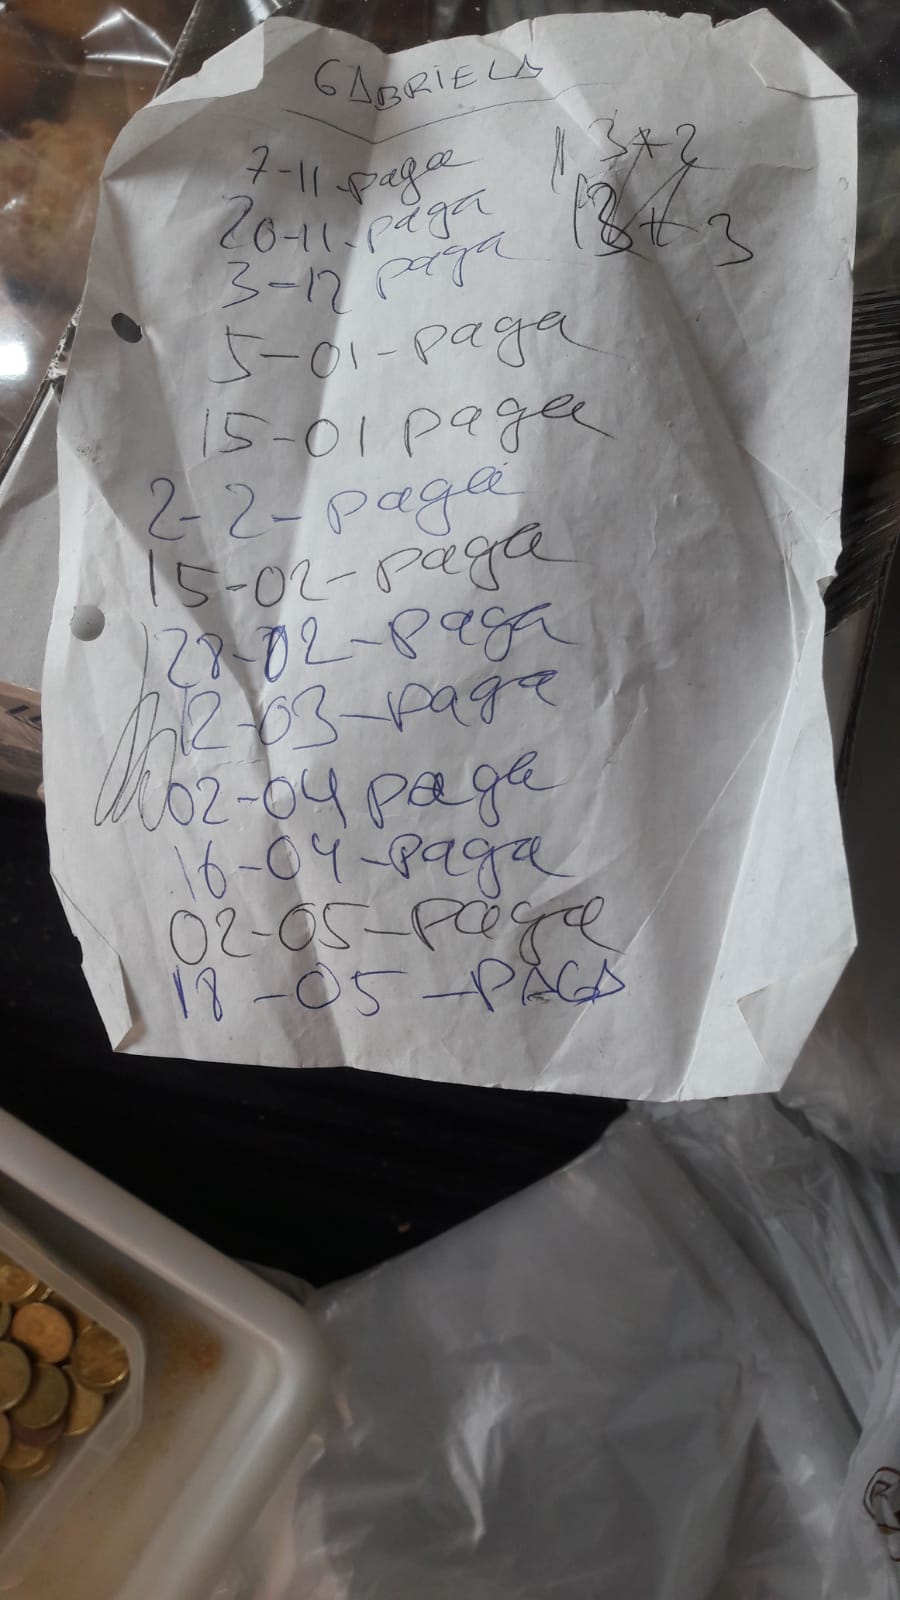 GABRIELA
7-11-paga
20-11-paga
3-12 paga
5-01-paga
15-01 paga
2-2-paga
15-02-paga
28-02-paga
12-03-paga
02-04 paga
16-04-paga
02-05-paga
18-05-PAGA